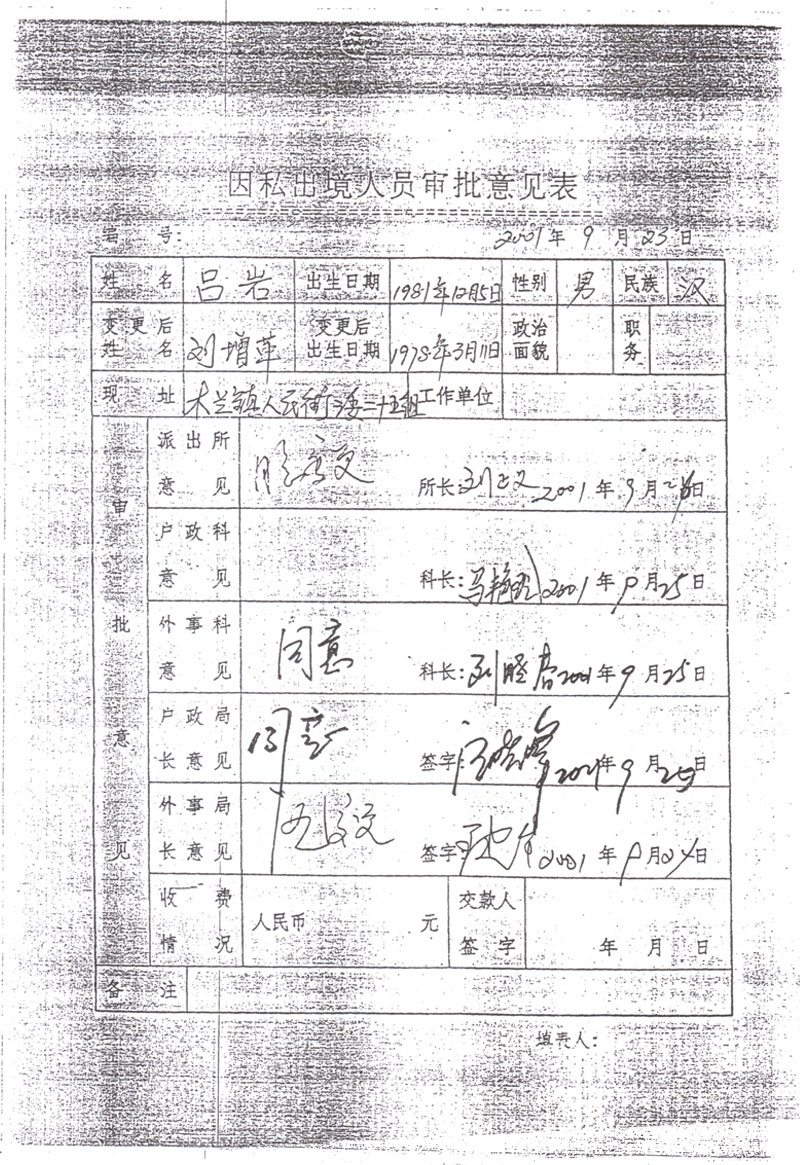 因私出境人员审批意见表
编 号: 2001年 9 月 23 日
姓 名 吕岩 出生日期 1981年12月5日 性别 男 民族 汉
变更后姓名 刘增萍 变更后出生日期 1978年3月11日 政治面貌 职务
现 址 木兰镇人民街委二十五组 工作单位
审批意见
派出所意见 所长: 2001 年 9 月 日
户政科意见 科长: 马艳 2001 年 9 月 25 日
外事科意见 同意 科长: 刘晓春 2001 年 9 月 25 日
户政局长意见 同意 签字 2001年 9 月 25 日
外事局长意见 签字: 2001 年 9 月 日
收费情况 人民币 元 交款人签字 年 月 日
备 注
填表人: